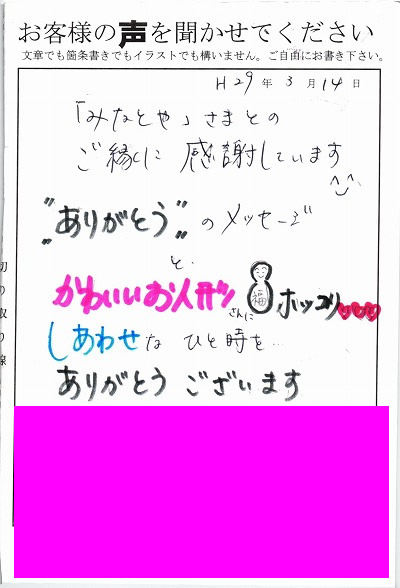 お客様の声を聞かせてください
文章でも箇条書きでもイラストでも構いません。ご自由にお書き下さい。
H29年3月14日
「みなとや」さまとの
ご縁に感謝しています
"ありがとう"のメッセージ
と
かわいいお人形さんに 福 ホッコリ♥♥♥
しあわせなひと時を…
ありがとうございます
切り取り線